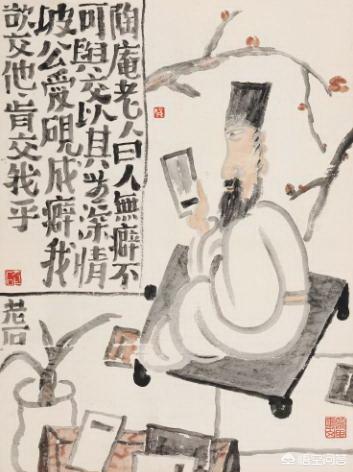 陶庵老人曰人無癖不
可與交以其無深情
坡公愛硯成癖我
欲交他肯交我乎
悟空问答